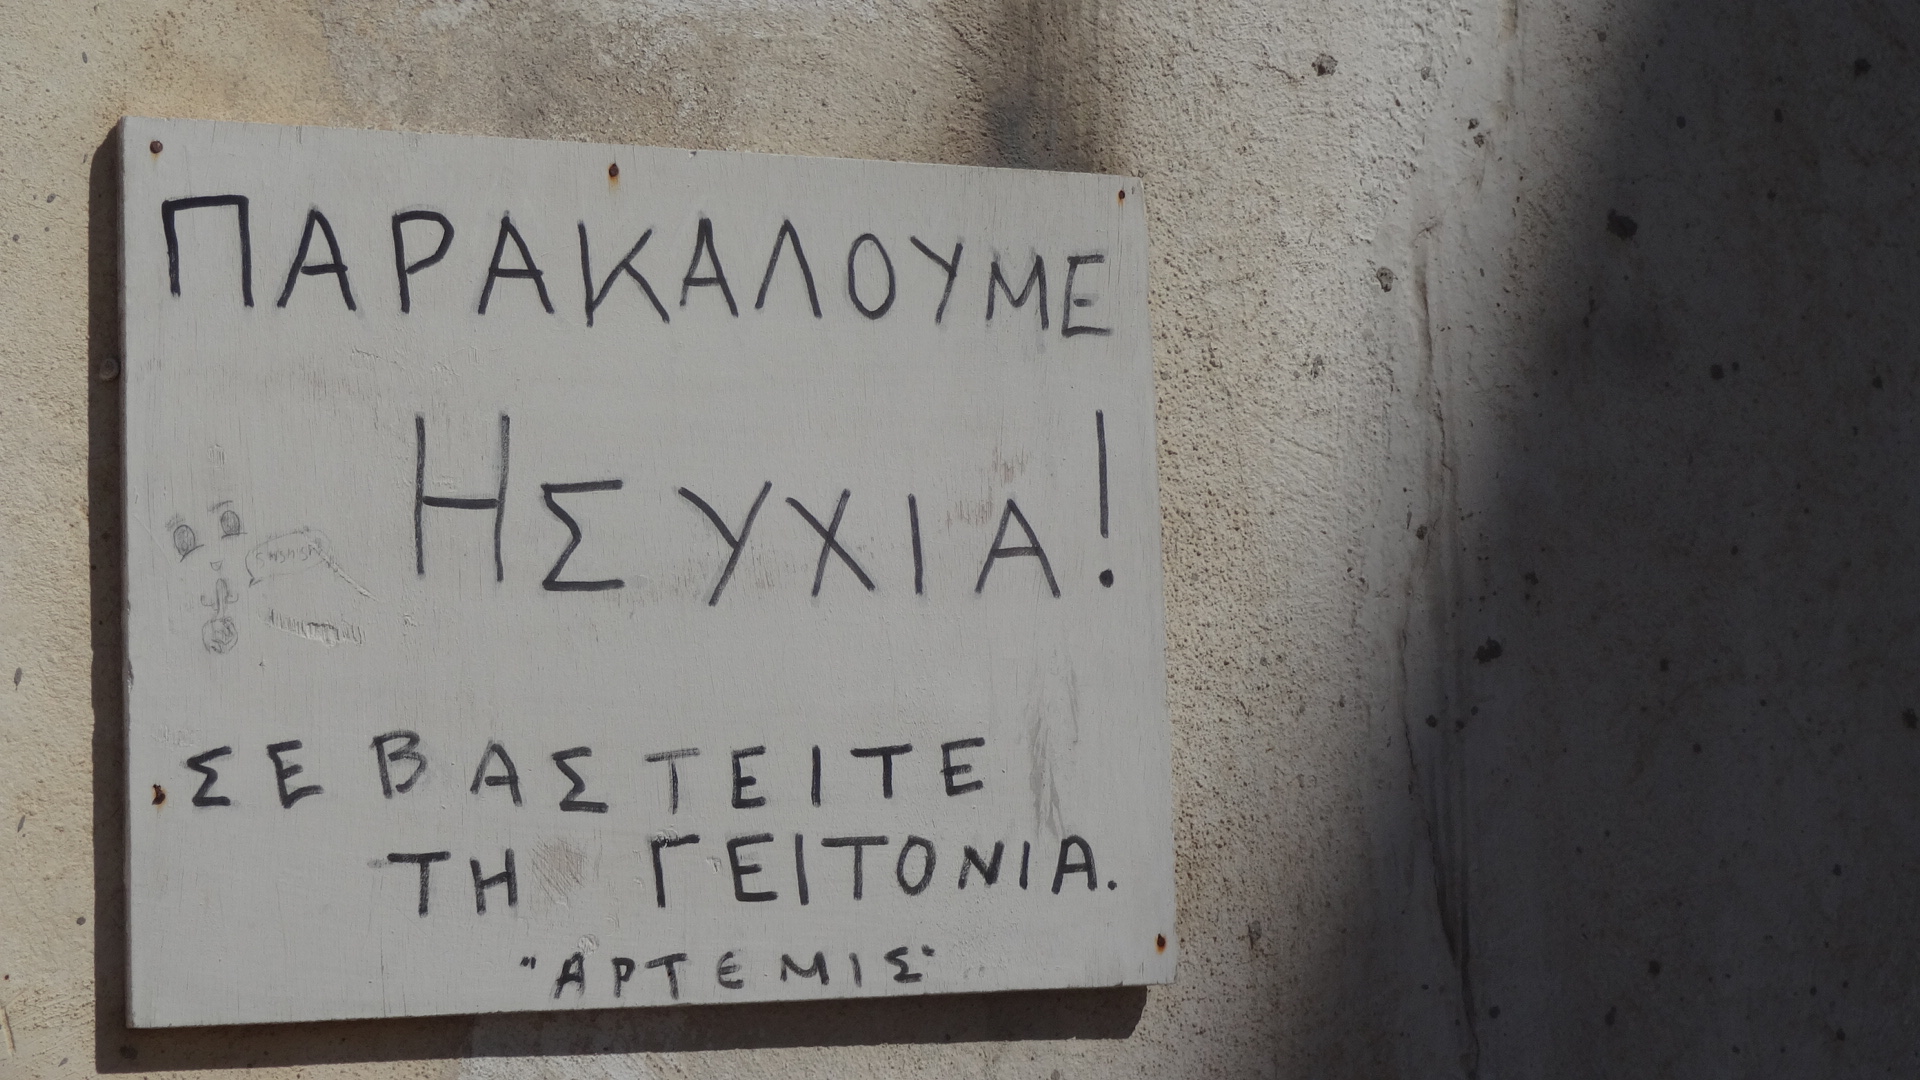 ΠΑΡΑΚΑΛΟΥΜΕ
ΗΣΥΧΙΑ!
ΣΕΒΑΣΤΕΙΤΕ
ΤΗ ΓΕΙΤΟΝΙΑ.
"ΑΡΤΕΜΙΣ"